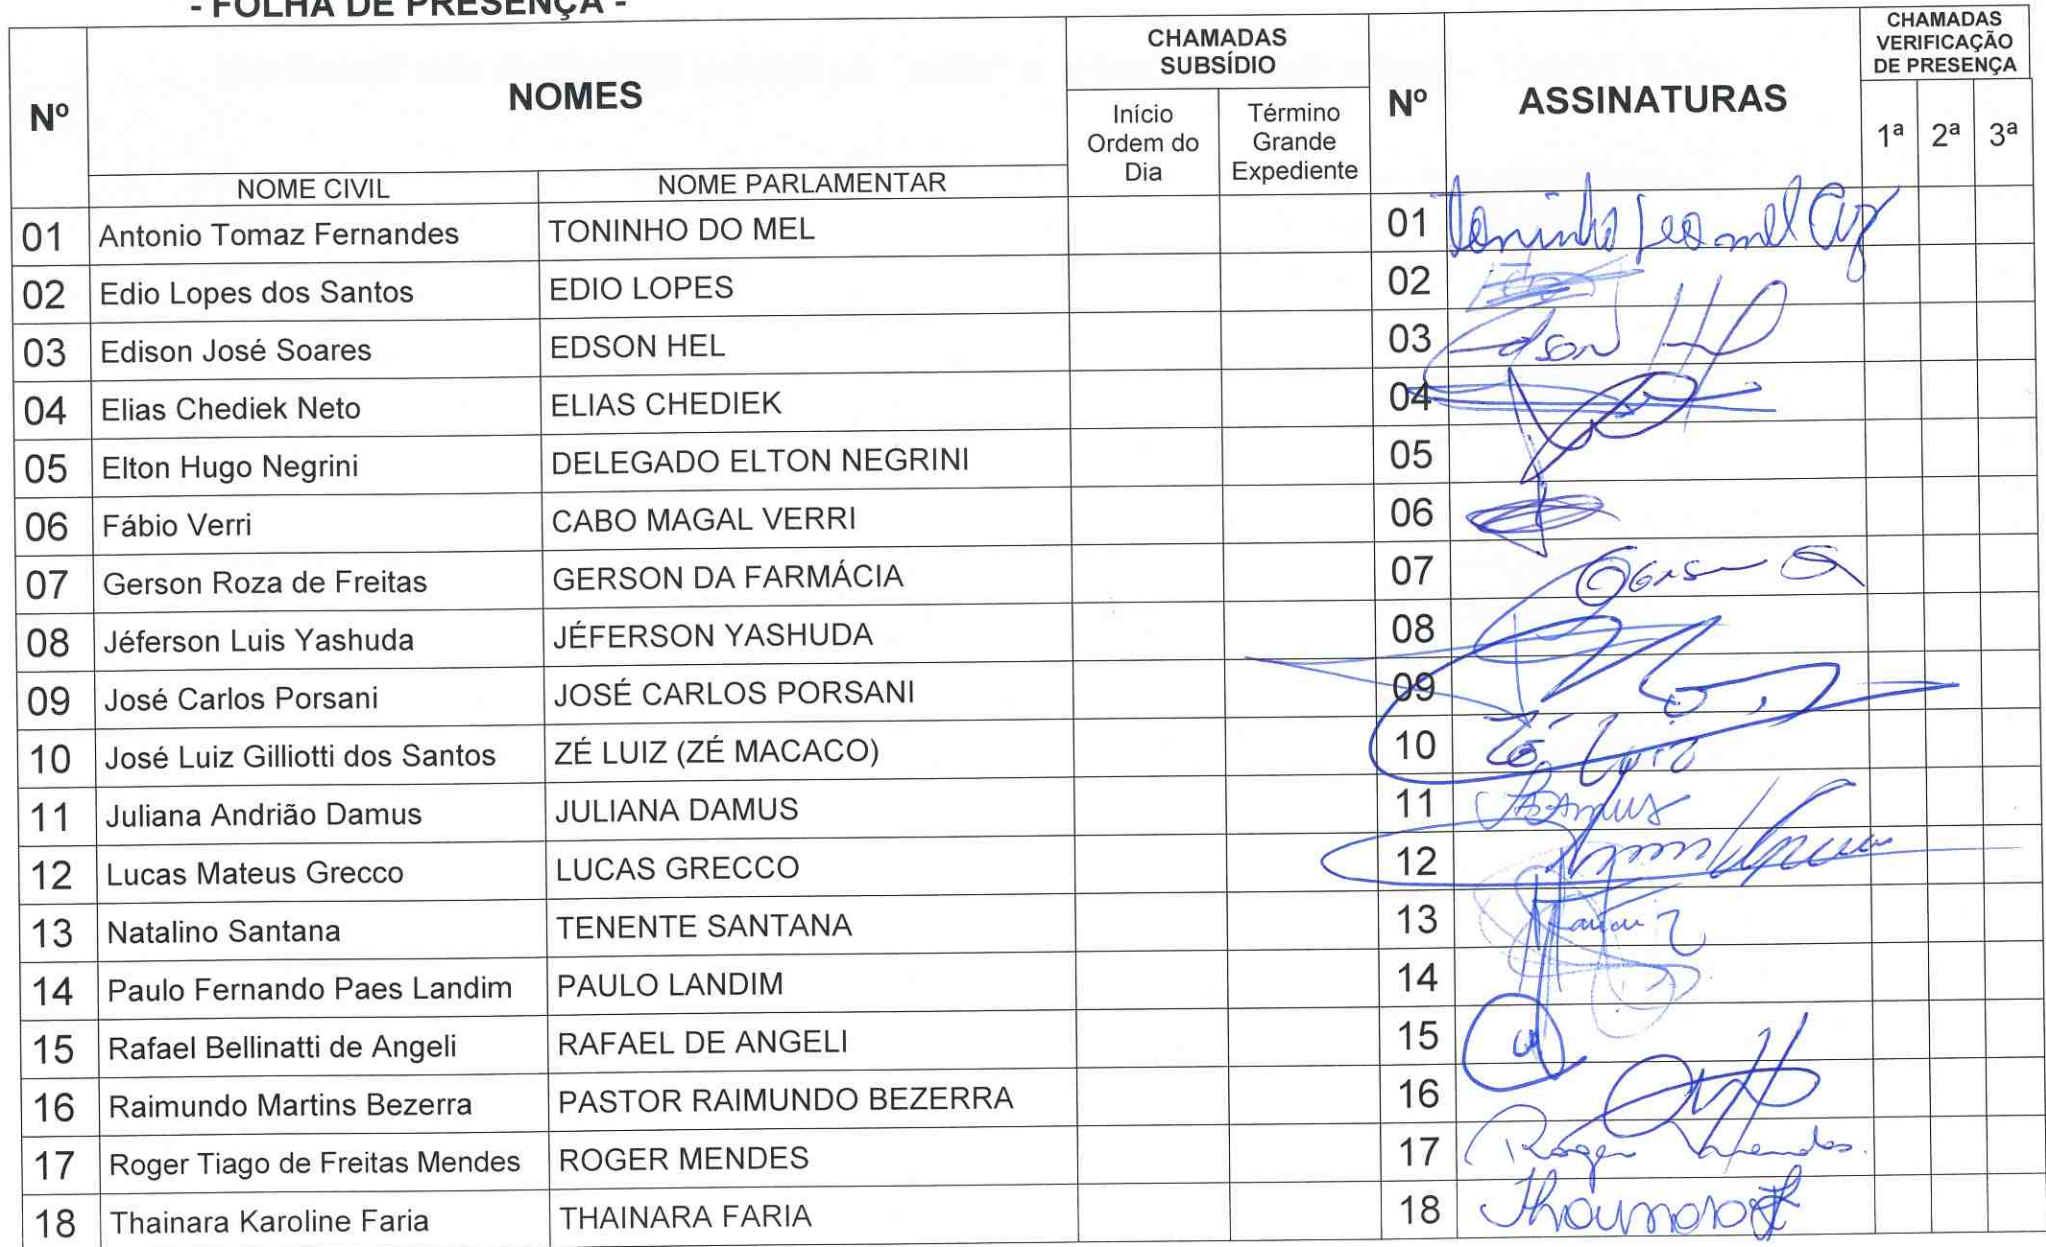 - FOLHA DE PRESENÇA -
Nº NOMES CHAMADAS SUBSÍDIO Nº ASSINATURAS CHAMADAS VERIFICAÇÃO DE PRESENÇA
Início Ordem do Dia Término Grande Expediente 1ª 2ª 3ª
NOME CIVIL NOME PARLAMENTAR
01 Antonio Tomaz Fernandes TONINHO DO MEL 01 Toninho do mel
02 Edio Lopes dos Santos EDIO LOPES 02
03 Edison José Soares EDSON HEL 03 Edson Hel
04 Elias Chediek Neto ELIAS CHEDIEK 04
05 Elton Hugo Negrini DELEGADO ELTON NEGRINI 05
06 Fábio Verri CABO MAGAL VERRI 06
07 Gerson Roza de Freitas GERSON DA FARMÁCIA 07 Gerson
08 Jéferson Luis Yashuda JÉFERSON YASHUDA 08
09 José Carlos Porsani JOSÉ CARLOS PORSANI 09
10 José Luiz Gilliotti dos Santos ZÉ LUIZ (ZÉ MACACO) 10 Zé Luiz
11 Juliana Andrião Damus JULIANA DAMUS 11 JADAMUS
12 Lucas Mateus Grecco LUCAS GRECCO 12
13 Natalino Santana TENENTE SANTANA 13
14 Paulo Fernando Paes Landim PAULO LANDIM 14
15 Rafael Bellinatti de Angeli RAFAEL DE ANGELI 15
16 Raimundo Martins Bezerra PASTOR RAIMUNDO BEZERRA 16
17 Roger Tiago de Freitas Mendes ROGER MENDES 17 Roger Mendes
18 Thainara Karoline Faria THAINARA FARIA 18 Thainara F